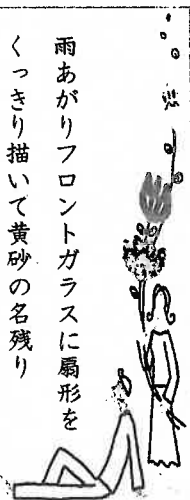 雨あがりフロントガラスに扇形を
くっきり描いて黄砂の名残り